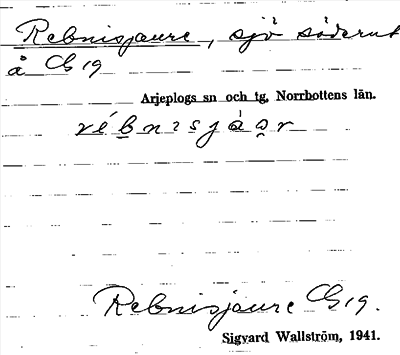 Rebnisjaure, sjö söderut
å CG 19
Arjeplogs sn och tg, Norrbottens län.
rébnısjáọr
Rebnisjaure CG 19.
Sigvard Wallström, 1941.